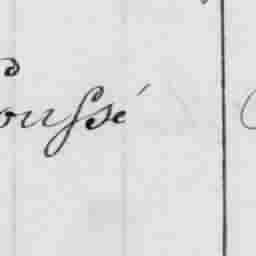 oussé